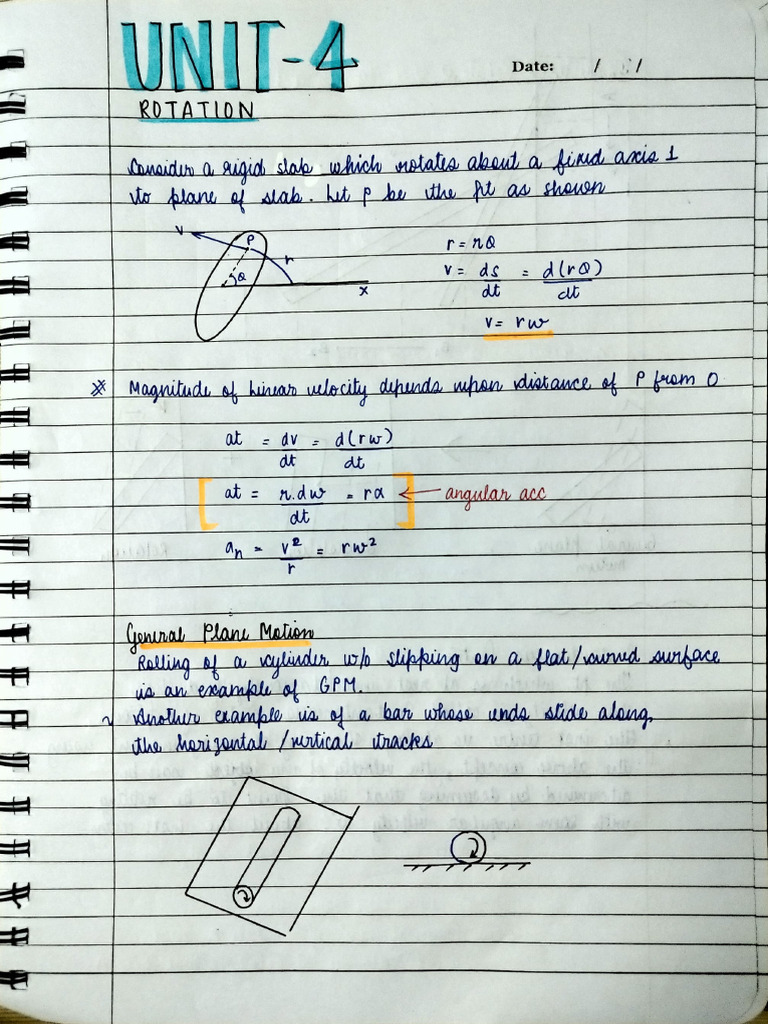 UNIT-4
Date: / /
ROTATION
Consider a rigid slab which rotates about a fixed axis ⊥
to plane of slab. Let P be the pt as shown
v P r θ x
r = rθ
v = ds/dt = d(rθ)/dt
v = rw
* Magnitude of linear velocity depends upon distance of P from O
at = dv/dt = d(rw)/dt
[at = r.dw/dt = rα] ← angular acc
an = v²/r = rw²
General Plane Motion
Rolling of a cylinder w/o slipping on a flat/curved surface
is an example of GPM.
~ Another example is of a bar whose ends slide along
the horizontal/vertical tracks